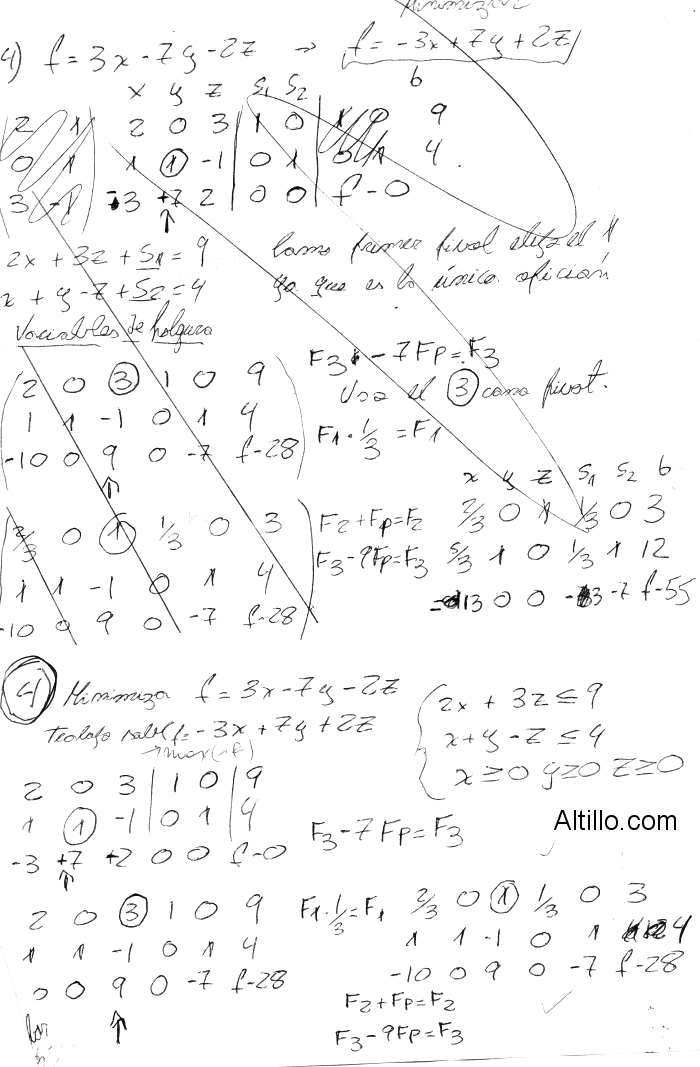 Minimizar
4) f = 3x - 7y - 2z → f = -3x + 7y + 2z
x y z S1 S2 b
2 1 2 0 3 1 0 1 0 9
0 1 1 1 -1 0 1 0 1 4
3 -1 -3 +7 2 0 0 f-0
2x + 3z + S1 = 9
x + y - z + S2 = 4
Variables de holgura
Como primer pivot elijo el 1
ya que es la única opición
F3 - 7Fp = F3
Uso el 3 como pivot.
2 0 3 1 0 9
1 1 -1 0 1 4
-10 0 9 0 -7 f-28
F1 · 1/3 = F1
2/3 0 1 1/3 0 3
1 1 -1 0 1 4
-10 0 9 0 -7 f-28
F2 + Fp = F2
F3 - 9Fp = F3
x y z S1 S2 b
2/3 0 1 1/3 0 3
5/3 1 0 1/3 1 12
13 0 0 -3 -7 f-55
4) Minimiza f = 3x - 7y - 2z
f = -3x + 7y + 2z
→ max(-f)
2x + 3z ≤ 9
x + y - z ≤ 4
x ≥ 0 y ≥ 0 z ≥ 0
2 0 3 1 0 9
1 1 -1 0 1 4
-3 +7 +2 0 0 f-0
F3 - 7Fp = F3
Altillo.com
2 0 3 1 0 9
1 1 -1 0 1 4
0 0 9 0 -7 f-28
F1 · 1/3 = F1
2/3 0 1 1/3 0 3
1 1 -1 0 1 4
-10 0 9 0 -7 f-28
F2 + Fp = F2
F3 - 9Fp = F3